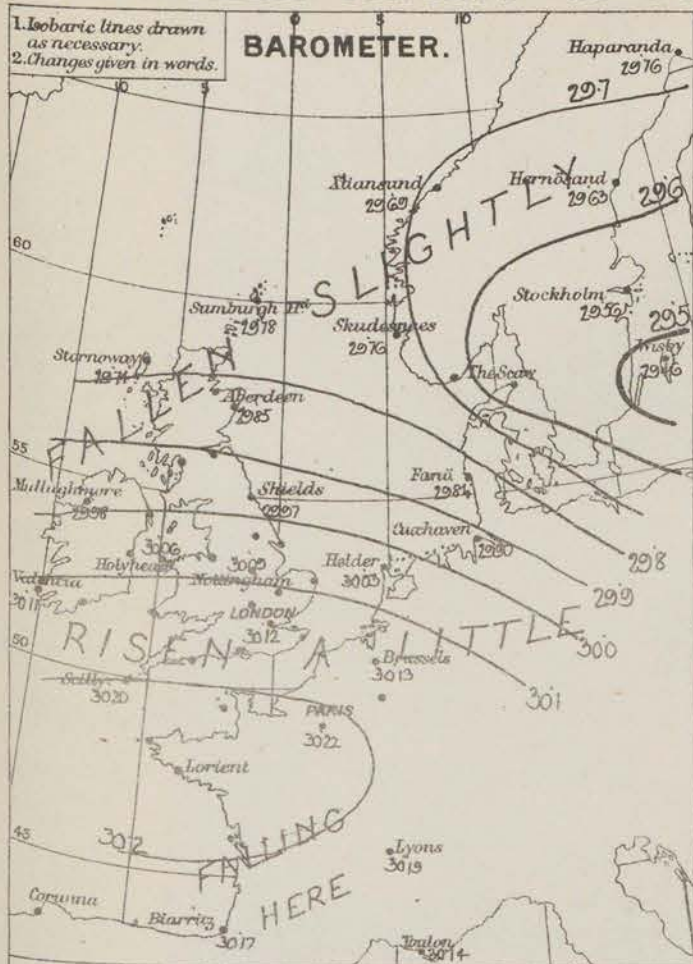 1. Isobaric lines drawn
as necessary.
2. Changes given in words.
BAROMETER.
0
5
10
10
5
Haparanda
2976
29.7
Xtiansund
2969
Hernösand
2963
29.6
SLIGHTLY
60
Sumburgh Hd.
2978
Stockholm
2956
29.5
Skudesnaes
2976
Wisby
2946
Stornoway
2974
The Scaw
FALLEN
Aberdeen
2985
55
Fanö
2984
Mullaghmore
2998
Shields
2997
Cuxhaven
2990
29.8
3006
Holyhead
3009
Nottingham
Helder
3003
29.9
Valencia
3011
LONDON
3012
30.0
RISEN A LITTLE
50
Brussels
3013
30.1
Scilly
3020
PARIS
3022
Lorient
45
30.2
FALLING
HERE
Lyons
3019
Corunna
Biarritz
3017
Toulon
3014